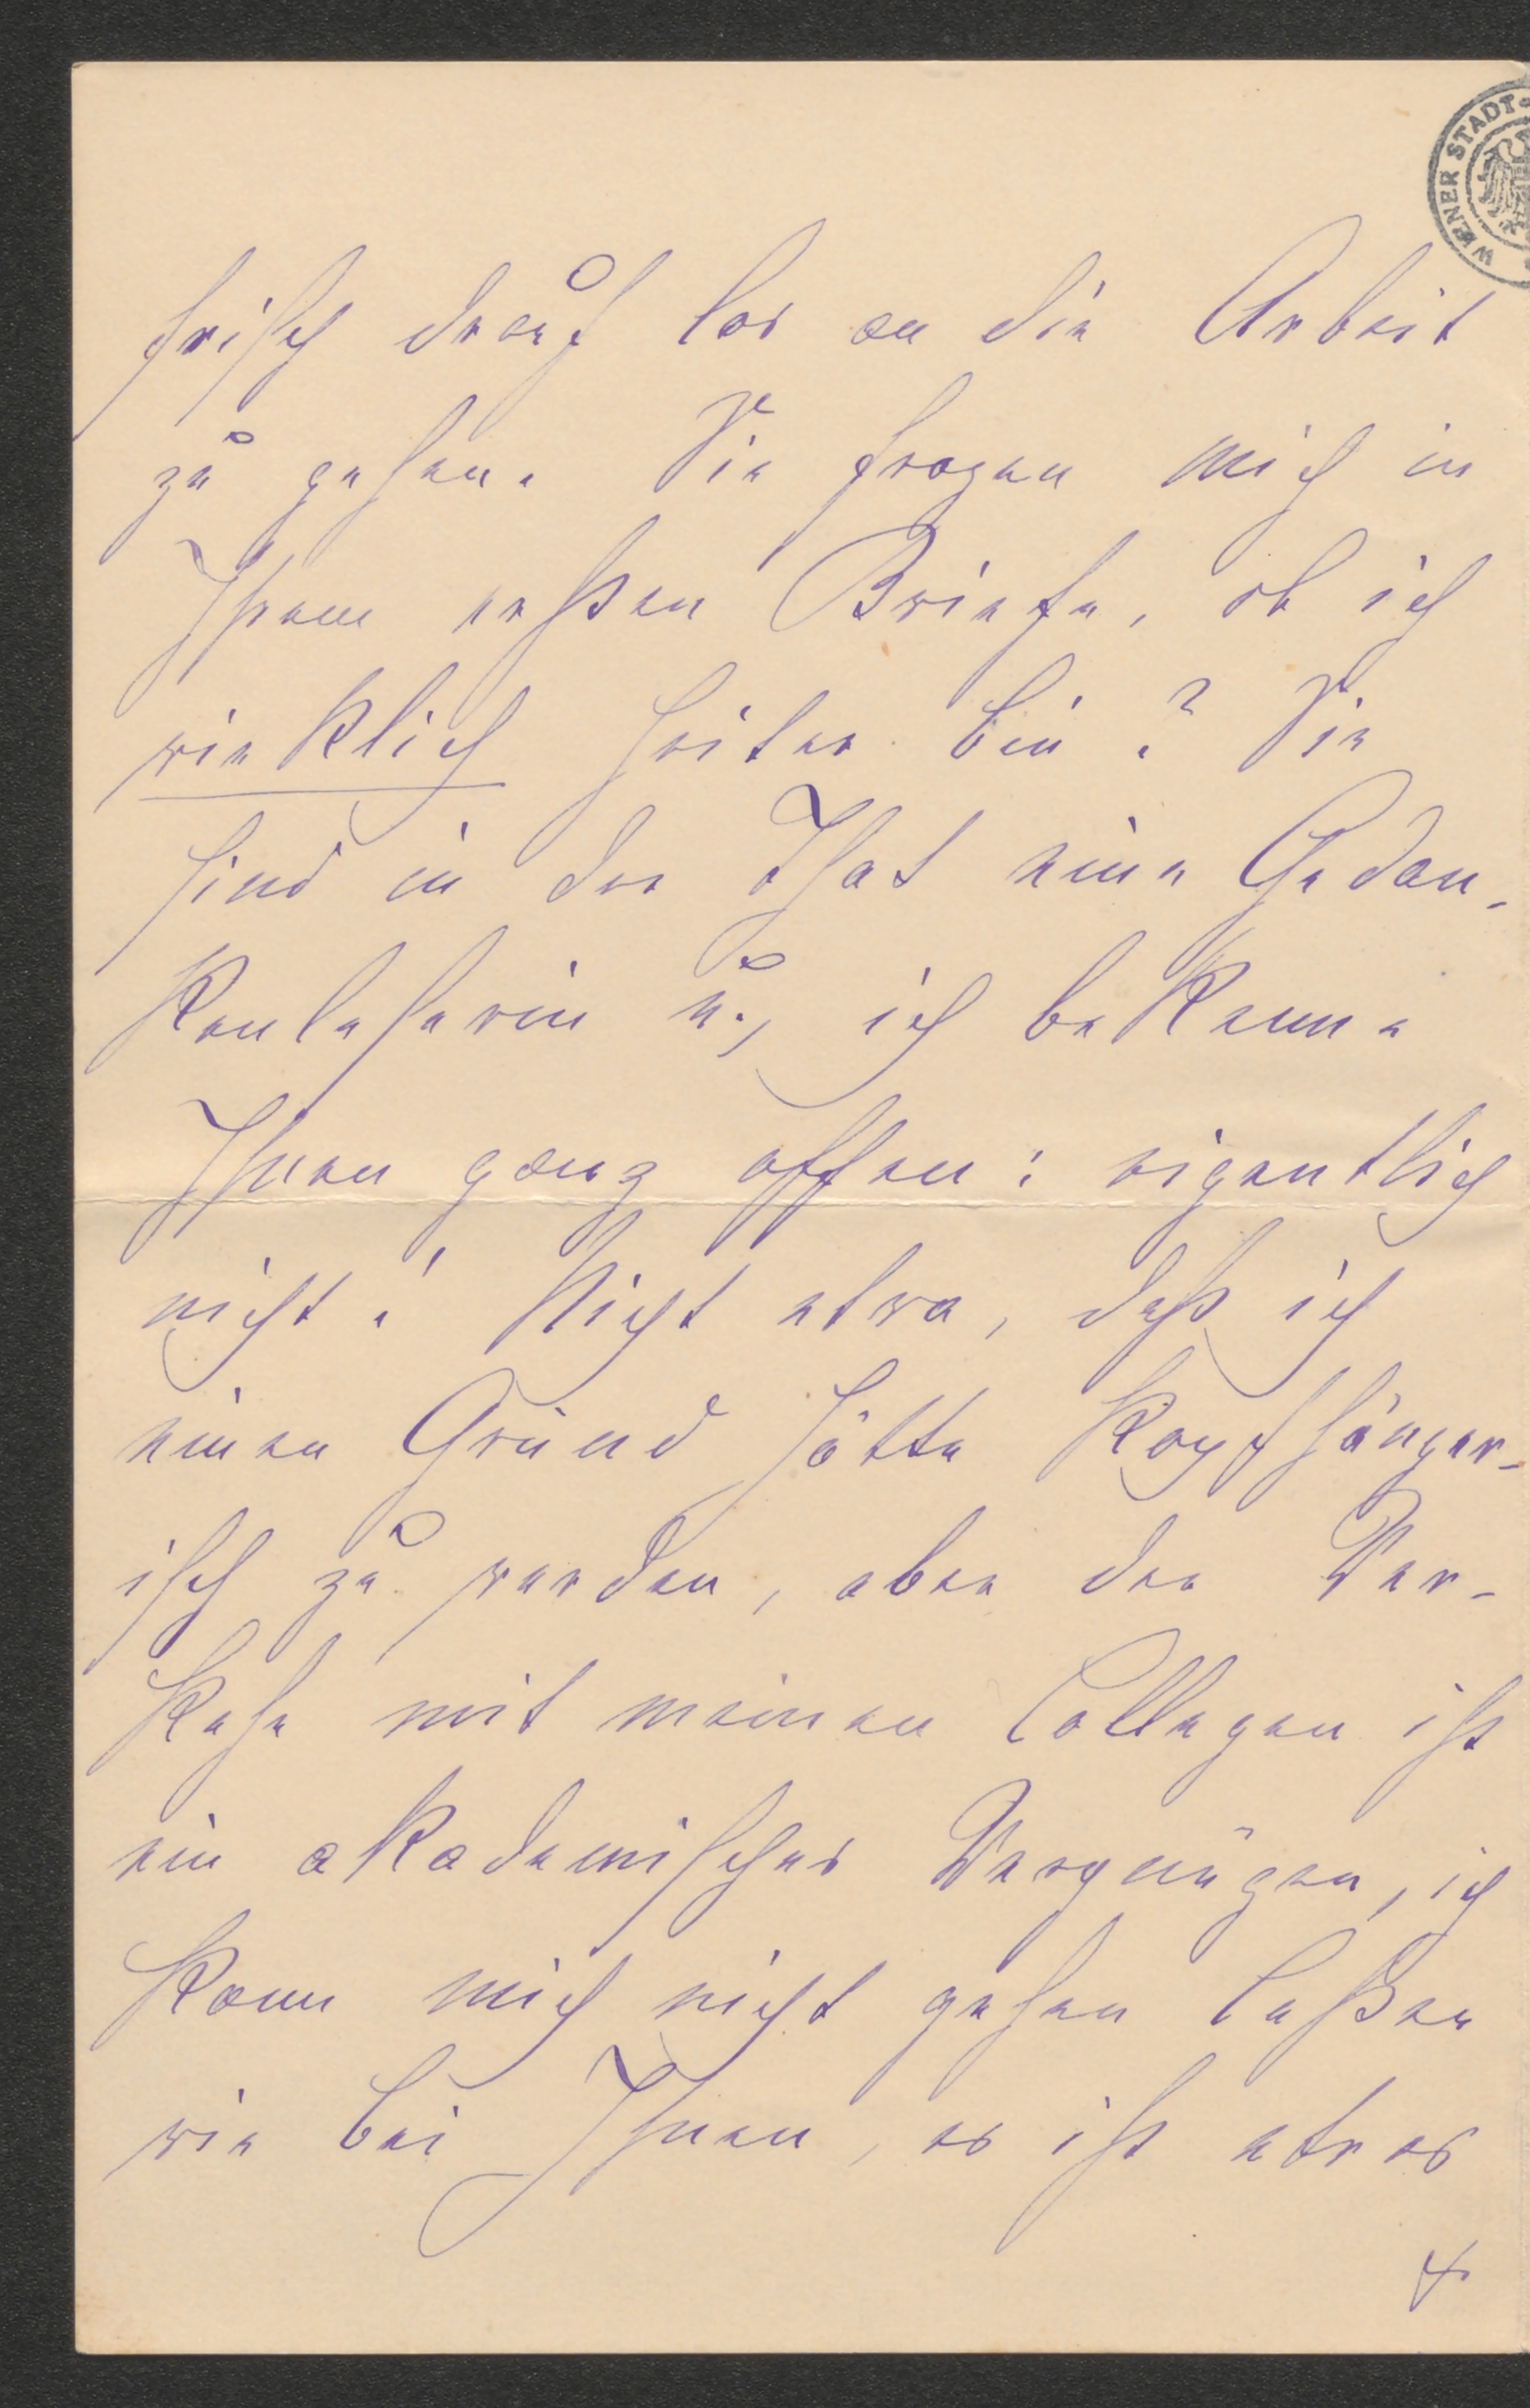 WIENER STADT-
frisch drauf los an die Arbeit
zu gehen. Sie fragen mich in
Ihrem ersten Briefe, ob ich
wirklich heiter bin? Sie
sind in der That eine Gedan-
kenleserin u., ich bekenne
Ihnen ganz offen: eigentlich
nicht! Nicht etwa, daß ich
einen Grund hätte kopfhänger-
isch zu werden, aber der Ver-
kehr mit meinen Collegen ist
ein akademisches Vergnügen, ich
kann mich nicht gehen laßen
wie bei Ihnen, es ist etwas